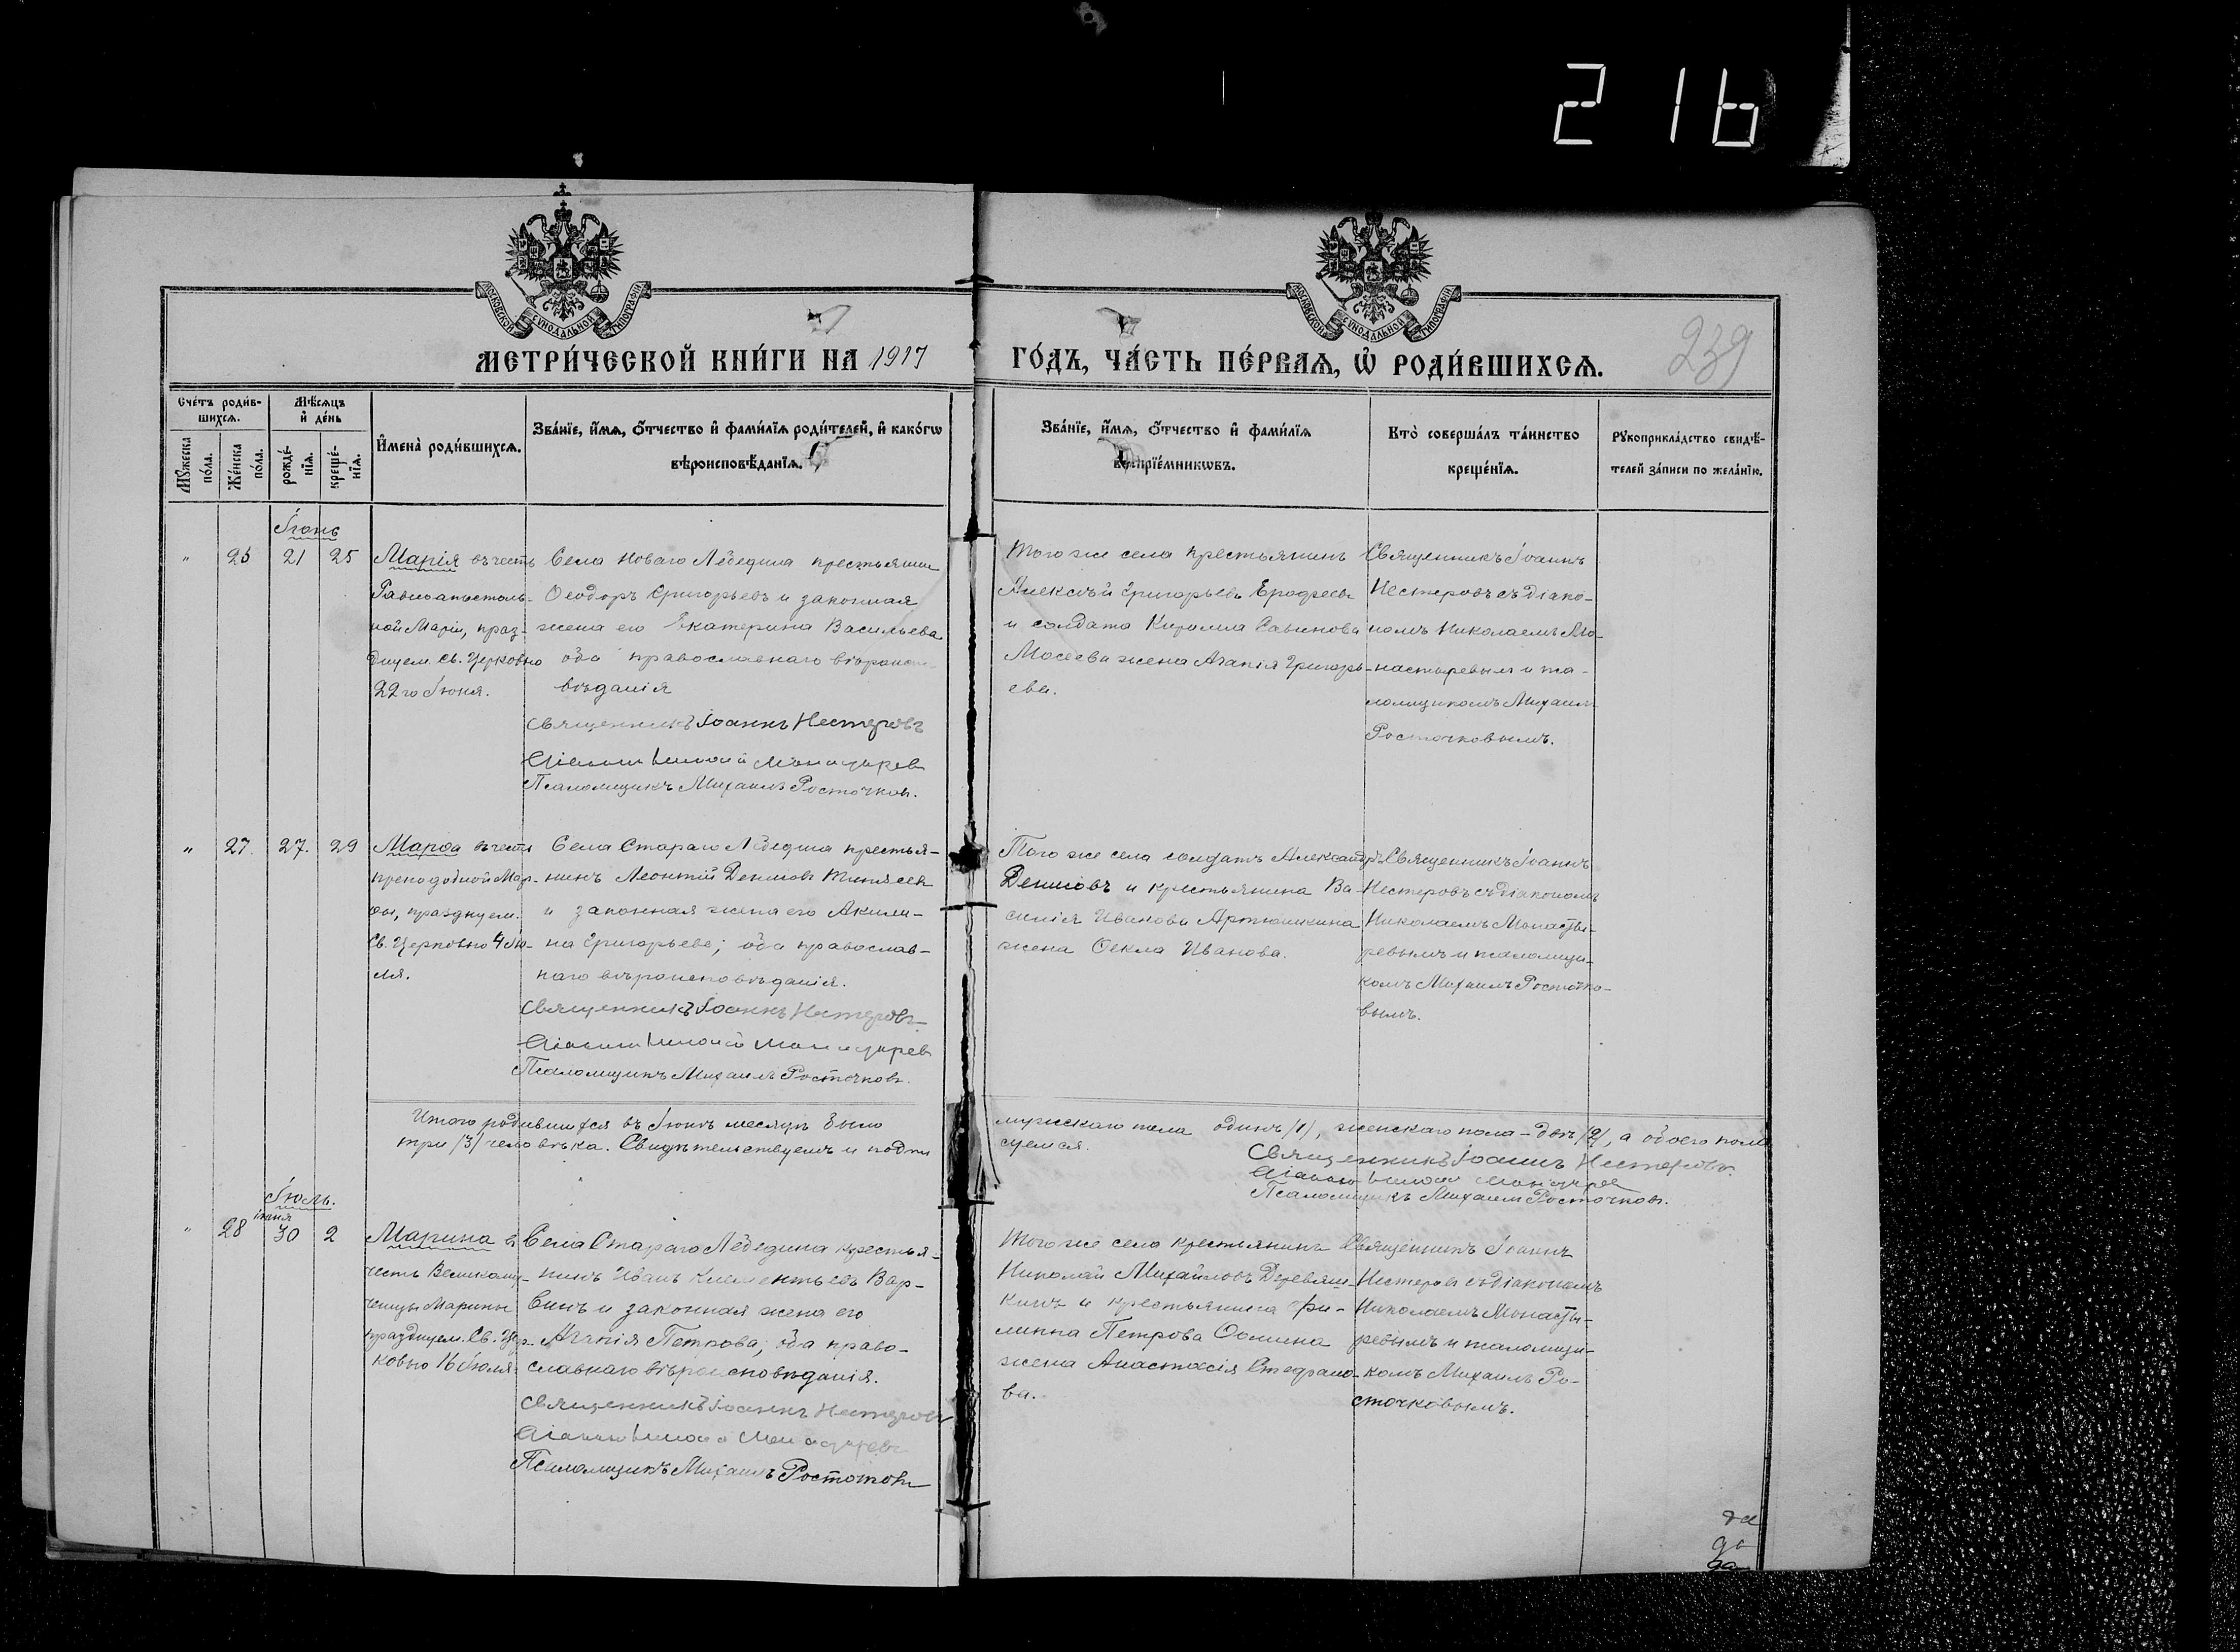 216
МОСКОВСКОЙ СѴНОДАЛЬНОЙ ТИПОГРАФІИ
МОСКОВСКОЙ СѴНОДАЛЬНОЙ ТИПОГРАФІИ
МЕТРИ́ЧЕСКОЙ КНИ́ГИ НА 1917
ГО́ДЪ, ЧА́СТЬ ПЕ́РВАѦ, Ѡ҆ РОДИ́ВШИХСѦ.
239
Сче́тъ роди́в-
шихсѧ.
Мѣ́сѧцъ
и҆ де́нь
Мꙋжеска по́ла.
Же́нска по́ла.
рожде́-
нїѧ.
креще́-
нїѧ.
И҆мена̀ роди́вшихсѧ.
Зва́нїе, и҆́мѧ, ѻ҆́тчество и҆ фами́лїѧ роди́телей, и҆ како́гѡ
вѣроисповѣ́данїѧ.
Зва́нїе, и҆́мѧ, ѻ҆́тчество и҆ фами́лїѧ
воспрїе́мникѡвъ.
Кто̀ соверша́лъ та́инство
креще́нїѧ.
Рꙋкоприкла́дство свидѣ́-
телей за́писи по жела́нїю.
Іюнь
" 21 25
Марія въ честь
Равноапостоль-
ной Маріи, праз-
днуем. Св. Церковью
22го Іюня.
Села Новаго Лебедина крестьянин
Ѳеодоръ Григорьевъ и законная
жена его Екатерина Васильева
оба православнаго вѣроиспо-
вѣданія
Священникъ Іоаннъ Нестеровъ
Діаконъ Николай Монастырев
Псаломщикъ Михаилъ Росточков.
Того же села крестьянинъ
Алексѣй Григорьевъ
и солдата Кирилла Савинова
Мосеева жена Агапія Григорь-
ева.
Священникъ Іоаннъ
Нестеровъ съ діако-
номъ Николаемъ Мо-
настыревым и пса-
ломщикомъ Михаилъ
Росточковымъ.
" 27. 27. 29
Марѳа въ честь
преподобной Мар-
ѳы, празднуем.
Св. Церковью 4 Ію-
ля.
Села Стараго Лебедина крестья-
нинъ Леонтій Денисовъ
и законная жена его Акили-
на Григорьева; оба православ-
наго вѣроисповѣданія.
Священникъ Іоаннъ Нестеровъ
Діаконъ Николай Монастырев
Псаломщикъ Михаилъ Росточковъ.
Того же села солдатъ Александръ
Денисовъ и крестьянина Ва-
силія Иванова Артюшкина
жена Ѳекла Иванова.
Священникъ Іоаннъ
Нестеровъ съ діакономъ
Николаемъ Монасты-
ревымъ и псаломщи-
комъ Михаилъ Росточко-
вымъ.
Итого родившихся въ Іюнѣ месяцѣ было
мужескаго пола одинъ /1/, женскаго пола - двѣ /2/, а обоего пола
три /3/ человѣка. Свидѣтельствуемъ и подпи
суемся.
Священникъ Іоаннъ Нестеровъ.
Діаконъ Николай Монастырев
Псаломщикъ Михаилъ Росточковъ.
Іюль.
іюня
" 28 30 2
Марина въ
честь Великому-
ченицы Марины
празднуем. Св. Цер-
ковью 16 Іюля
Села Стараго Лебедина крестья-
нинъ Иванъ Климентьевъ Вар-
винъ и законная жена его
Агапія Петрова; оба право-
славнаго вѣроисповѣданія.
Священникъ Іоаннъ Нестеровъ
Діаконъ Николай Монастыревъ
Псаломщикъ Михаилъ Росточковъ
Того же села крестьянинъ
Николай Михайловъ Деревяш-
кинъ и крестьянина Фи-
липпа Петрова Ѳомина
жена Анастасія Стефано-
ва.
Священникъ Іоаннъ
Нестеровъ съ діакономъ
Николаемъ Монасты-
ревымъ и псаломщи-
комъ Михаилъ Ро-
сточковымъ.